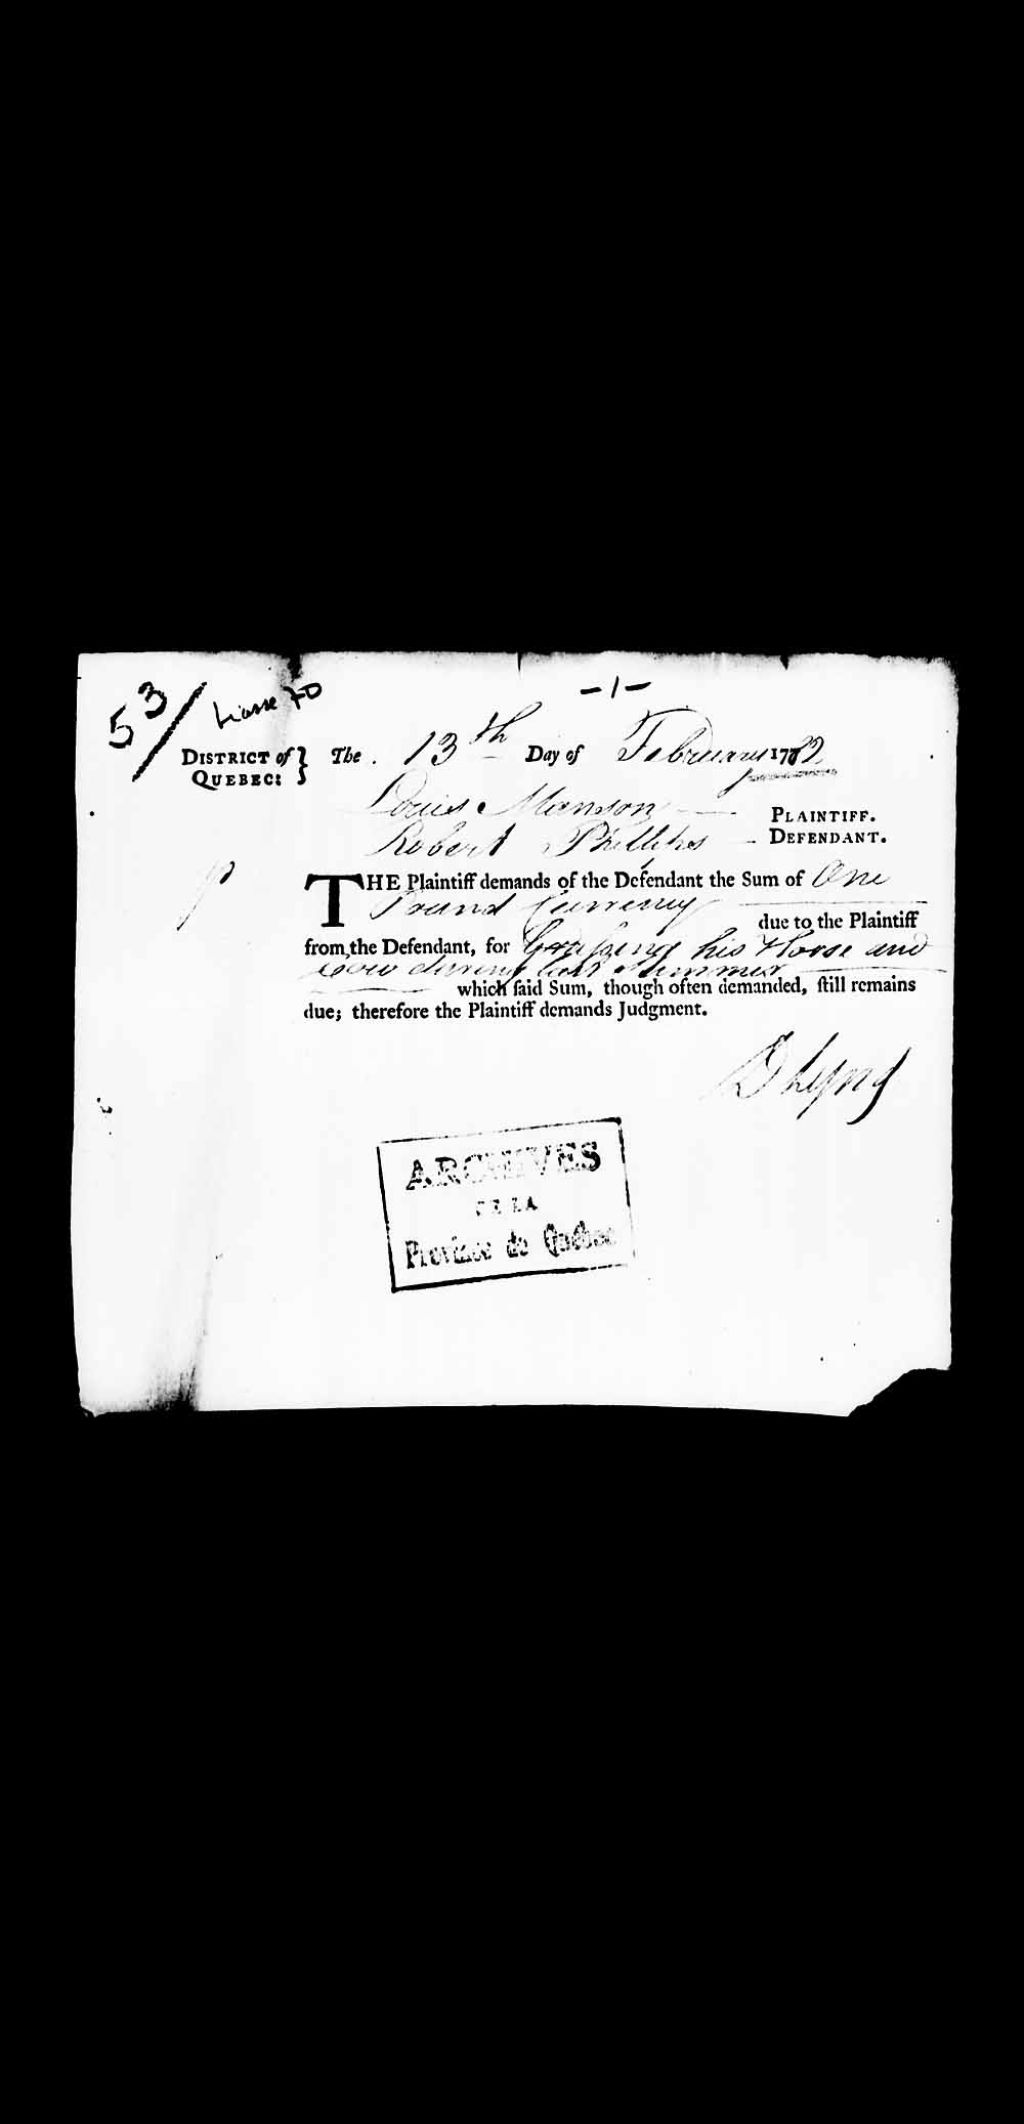 -1-
53/ Liasse 70
DISTRICT of QUEBEC: } The 13th Day of February 1782
Louis Manson PLAINTIFF.
Robert Phillips DEFENDANT.
THE Plaintiff demands of the Defendant the Sum of One
Pound Currency due to the Plaintiff
from the Defendant, for Graſsing his Horse and
Cow during last Summer
which ſaid Sum, though often demanded, ſtill remains
due; therefore the Plaintiff demands Judgment.
ARCHIVES
DE LA
Province de Québec